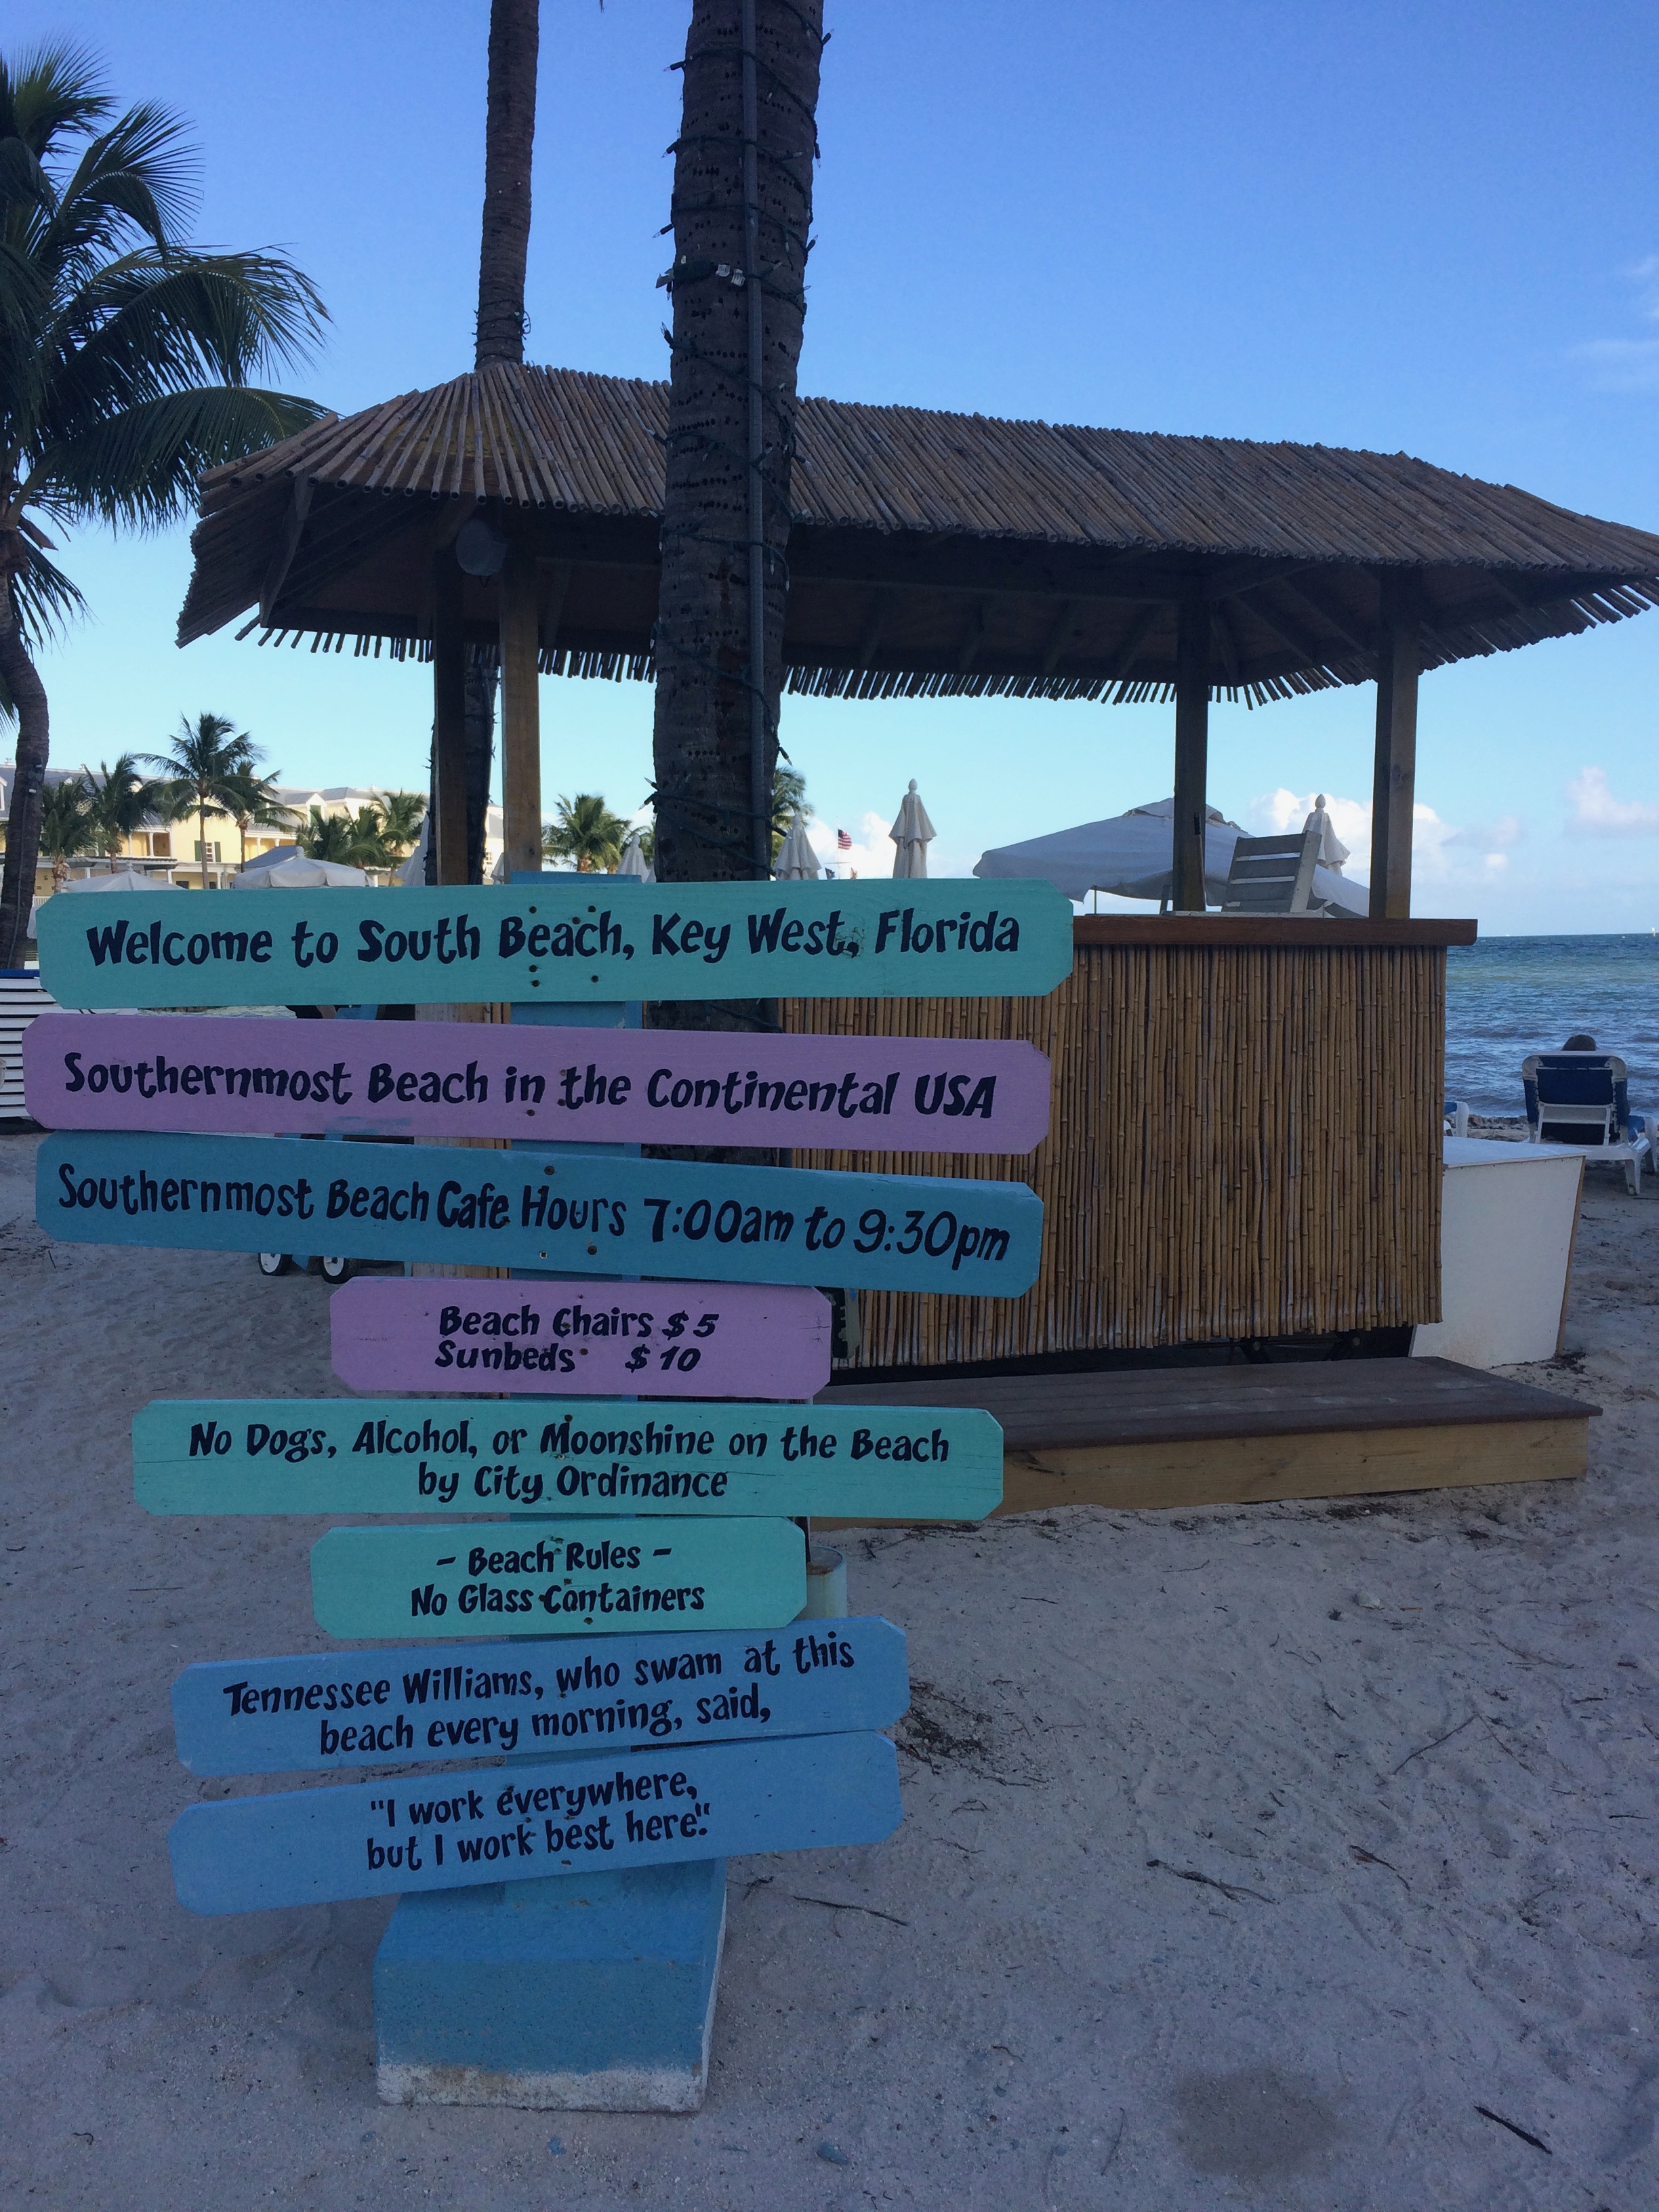 Welcome to South Beach, Key West, Florida
Southernmost Beach in the Continental USA
Southernmost Beach Cafe Hours 7:00am to 9:30pm
Beach Chairs $5
Sunbeds $10
No Dogs, Alcohol, or Moonshine on the Beach
by City Ordinance
- Beach Rules -
No Glass Containers
Tennessee Williams, who swam at this
beach every morning, said,
"I work everywhere,
but I work best here."